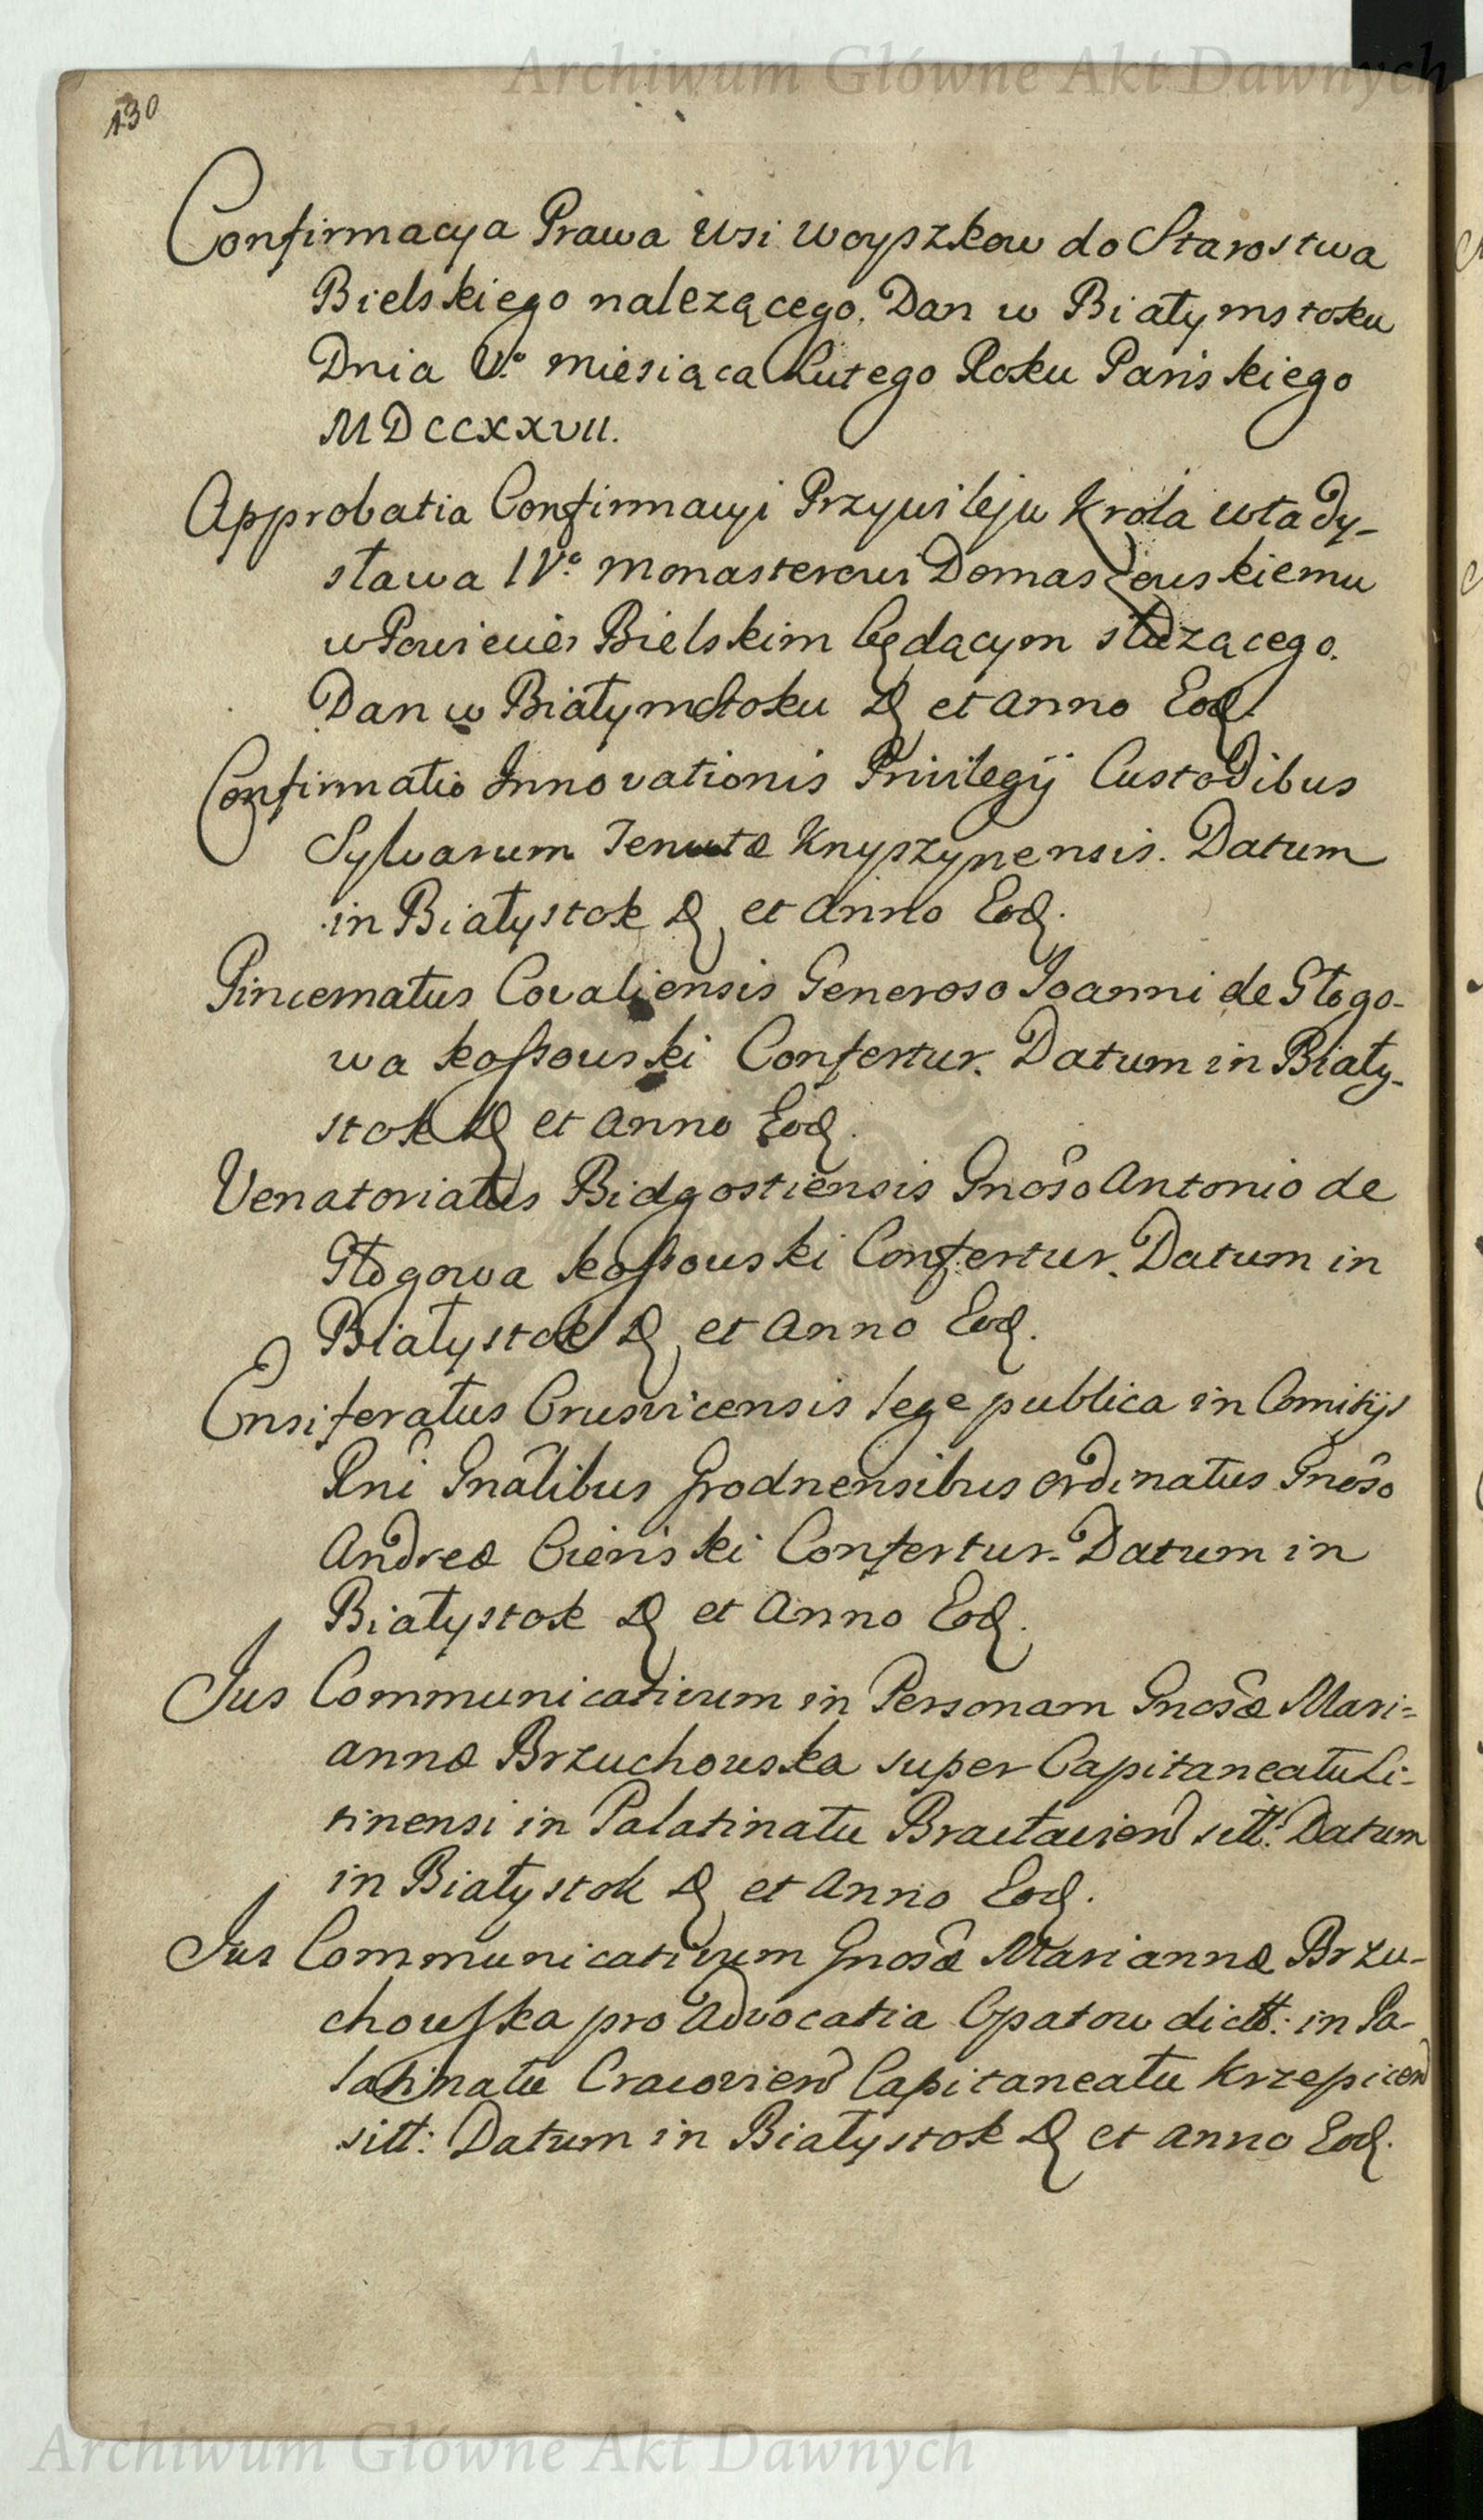 Archiwum Główne Akt Dawnych
130
Confirmacya Prawa Wsi Woyszkow do Starostwa
Bielskiego nalezącego. Dan w Białymstoku
Dnia V.° miesiąca Lutego Roku Pańskiego
MDCCXXVII.
Approbatia Confirmacyi Przywileju Króla Włady-
sława IV.° monasterowi Domaszowskiemu
w Powiecie Bielskim będącym służącego.
Dan w Białymstoku D et Anno Eod.
Confirmatio Innovationis Privilegij Custodibus
Sylvarum Tenutæ Knyszynensis. Datum
in Białystok D et Anno Eod.
Pincernatus Covaliensis Generoso Joanni de Głogo-
wa Kossowski Confertur. Datum in Biały-
stok D et Anno Eod.
Venatoriatus Bidgostiensis Gnoso Antonio de
Głogowa Kossowski Confertur. Datum in
Białystok D et Anno Eod.
Ensiferatus Crusvicensis lege publica in Comitijs
Rni Gnalibus Grodnensibus ordinatus Gnoso
Andreæ Cieński Confertur. Datum in
Białystok D et Anno Eod.
Jus Communicativum in Personam Gnosæ Mari-
annæ Brzuchowska super Capitaneatu Li-
tinensi in Palatinatu Braclavien sitt: Datum
in Białystok D et Anno Eod.
Jus Communicativum Gnosæ Mariannæ Brzu-
chowska pro Advocatia Opatow dictt: in Pa-
latinatu Cracovien Capitaneatu Krzepicen
sitt: Datum in Białystok D et Anno Eod.
Archiwum Główne Akt Dawnych